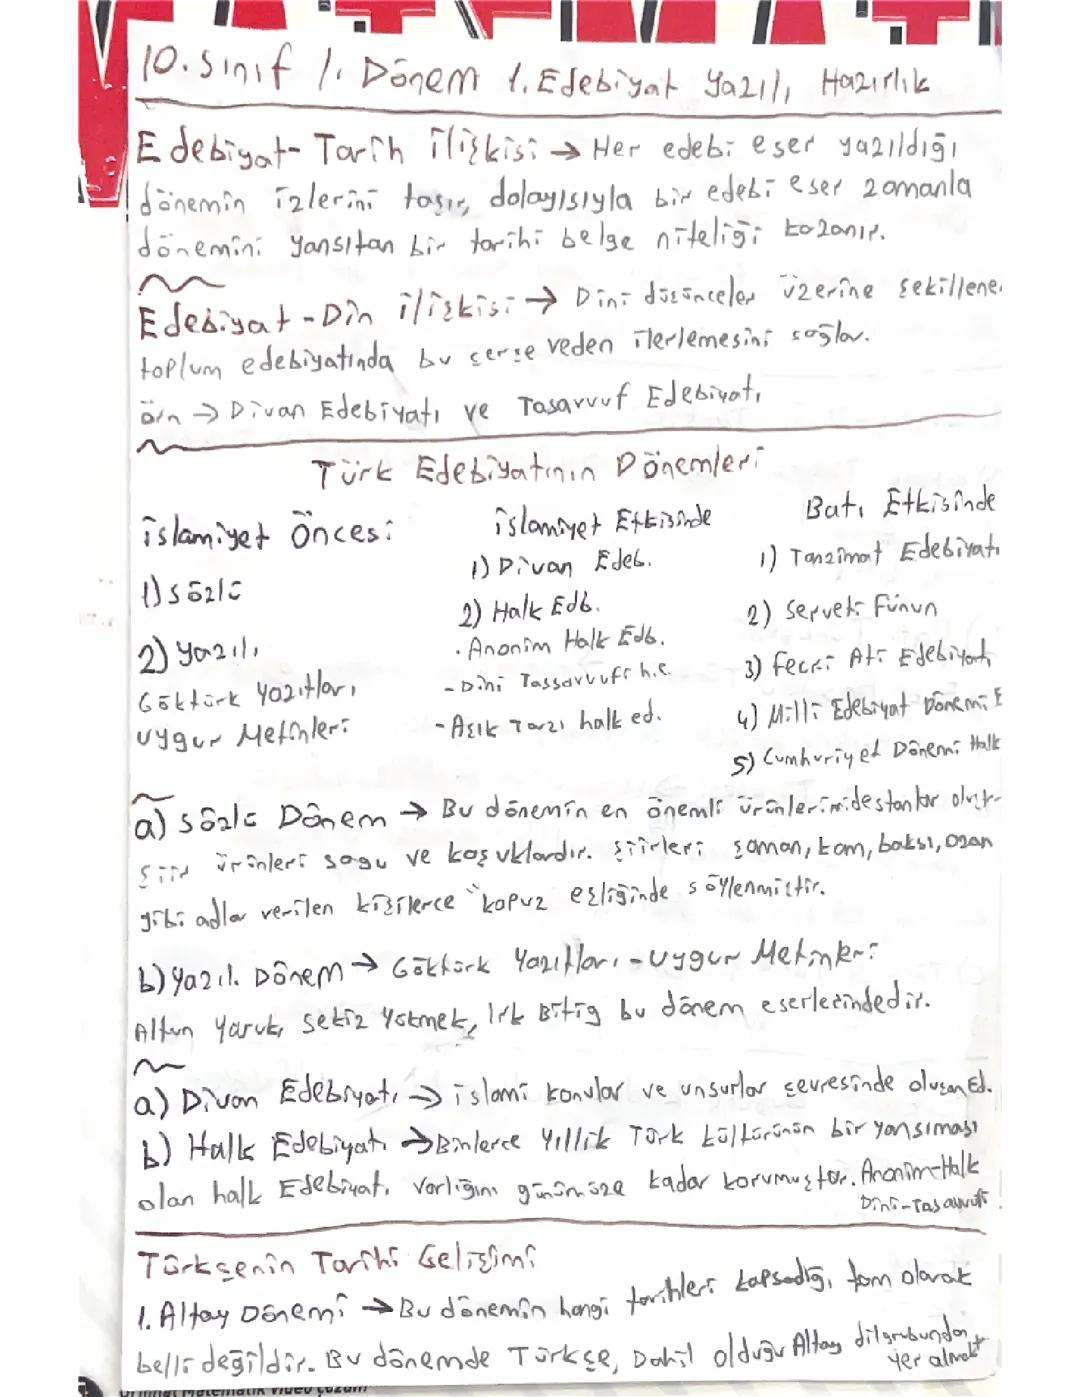 10. Sınıf 1. Dönem 1. Edebiyat Yazılı Hazırlık
Edebiyat-Tarih İlişkisi → Her edebi eser yazıldığı
dönemin izlerini taşır, dolayısıyla bir edebi eser zamanla
dönemini yansıtan bir tarihi belge niteliği kazanır.
Edebiyat-Din ilişkisi → Dini düşünceler üzerine şekillene
toplum edebiyatında bu çerçeveden ilerlemesini sağlar.
örn → Divan Edebiyatı ve Tasavvuf Edebiyatı
Türk Edebiyatının Dönemleri
İslamiyet Öncesi
1) Sözlü
2) Yazılı
Göktürk Yazıtları
Uygur Metinleri
İslamiyet Etkisinde
1) Divan Edeb.
2) Halk Edb.
. Anonim Halk Edb.
- Dini Tassavvufi h.e.
- Aşık Tarzı halk ed.
Batı Etkisinde
1) Tanzimat Edebiyatı
2) Serveti Fünun
3) Fecri Ati Edebiyatı
4) Milli Edebiyat Dönemi E
5) Cumhuriyet Dönemi Halk
a) Sözlü Dönem → Bu dönemin en önemli ürünlerini destanlar oluşt-
Şiir ürünleri sagu ve koşuklardır. Şiirleri şaman, kam, baksı, ozan
gibi adlar verilen kişilerce "kopuz eşliğinde söylenmiştir.
b) Yazılı Dönem → Göktürk Yazıtları - Uygur Metinleri
Altun Yaruk, Sekiz Yükmek, Irk Bitig bu dönem eserlerindedir.
a) Divan Edebiyatı → İslami konular ve unsurlar çevresinde oluşan Ed.
b) Halk Edebiyatı → Binlerce Yıllık Türk kültürünün bir yansıması
olan halk Edebiyatı varlığını günümüze kadar korumuştur. Anonim-Halk
Dini-Tasavvufi
Türkçenin Tarihi Gelişimi
1. Altay Dönemi → Bu dönemin hangi tarihleri kapsadığı tam olarak
belli değildir. Bu dönemde Türkçe, Dahil olduğu Altay dil grubunda
yer almakt